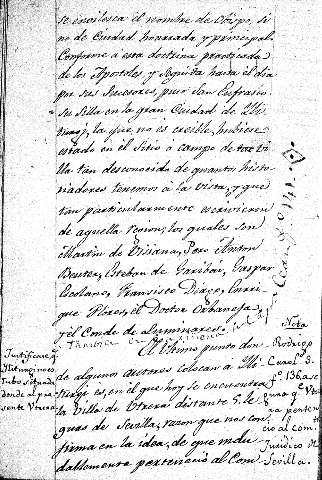 se envilesca el nombre de Obispo, si
no de Ciudad honrrada y principal.
Conforme á esta doctrina practicada
de los Apostoles, y seguida hasta el dia
por sus subcesores, puso San Eufrasio
su Silla en la gran Ciudad de Ili-
turgi, la que no es creible, hubiese
estado en el sitio ó campo de
lla tan desconocida de quantos histo-
riadores tenemos á la vista, y que
tan particularmente escrivieron
de aquella tierra, los quales son
Martin de Visiana, Pero Anton
Beuter, Esteban de Garibai, Gaspar
Escolano, Francisco Diago, Enrri-
que Flores, el Doctor Orbaneja,
y el Conde de Lumiares.
El ultimo punto don
de algunos autores colocan á Ili-
turgi es, en el que hoy se encuentra
la Villa de Utrera distante 5. le-
guas de Sevilla, razon que nos con-
firma en la idea, de que indu
dablemente perteneció al Com.
Justificase q.
Iliturgi no es
tubo situada
donde al pre
sente Utrera
Nota
Rodrigo
Caro l. 3.
f.º 136. ase
gura q.e Utre
ra perten
ció al com.
Juridico de
Sevilla.